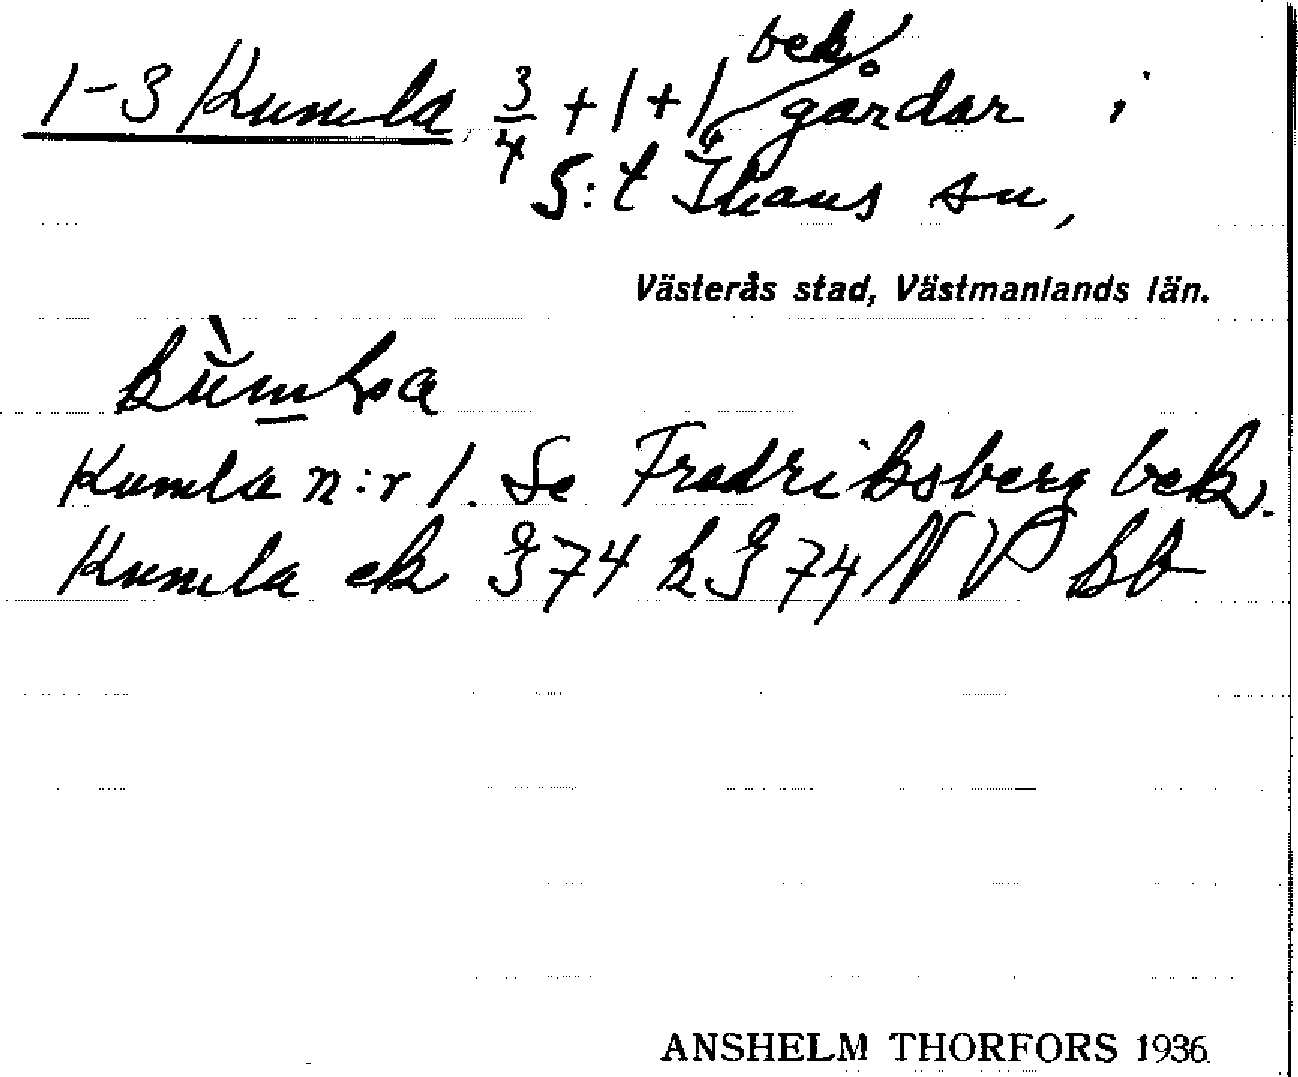 bek.
1-3 Kumla 3/4 + 1 + 1 gårdar i
S:t Ilians sn,
Västerås stad, Västmanlands län.
Kumla n:r 1. Se Fredriksberg bek.
Kumla ek J 74 k J 74 NV bb
ANSHELM THORFORS 1936.